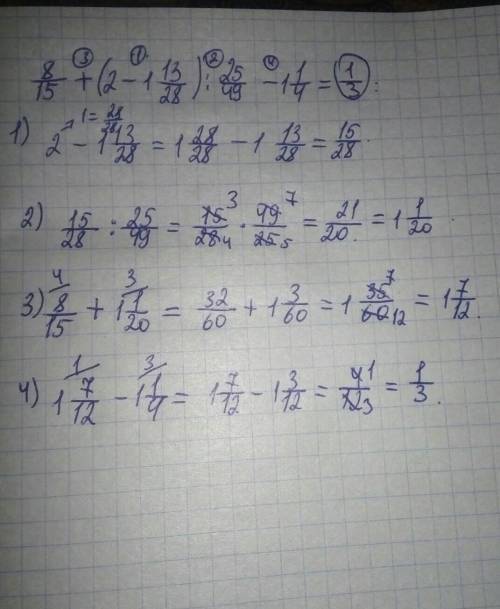 ③ ① ② ④
8/15 + (2 − 1 13/28) : 25/49 − 1 1/4 = 1/3 :
1 = 28/28
1) 2 − 1 13/28 = 1 28/28 − 1 13/28 = 15/28 .
2) 15/28 : 25/49 = 15 3/28 4 · 49 7/25 5 = 21/20 . = 1 1/20 .
3) 4/ 8/15 + 3/ 1 1/20 = 32/60 + 1 3/60 = 1 35 7/60 12 = 1 7/12 .
4) 1/ 1 7/12 − 3/ 1 1/4 = 1 7/12 − 1 3/12 = 4 1/12 3 = 1/3 .